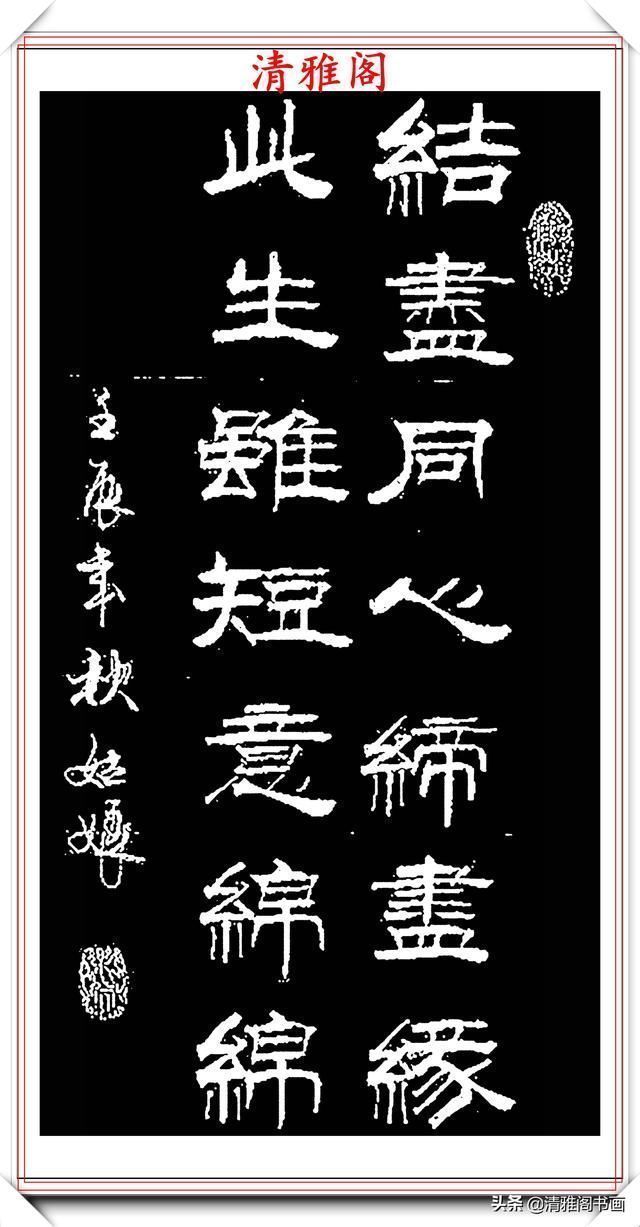 清雅阁
結盡同心締盡緣
此生雖短意綿綿
壬辰年秋姑娘
头条 @清雅阁书画